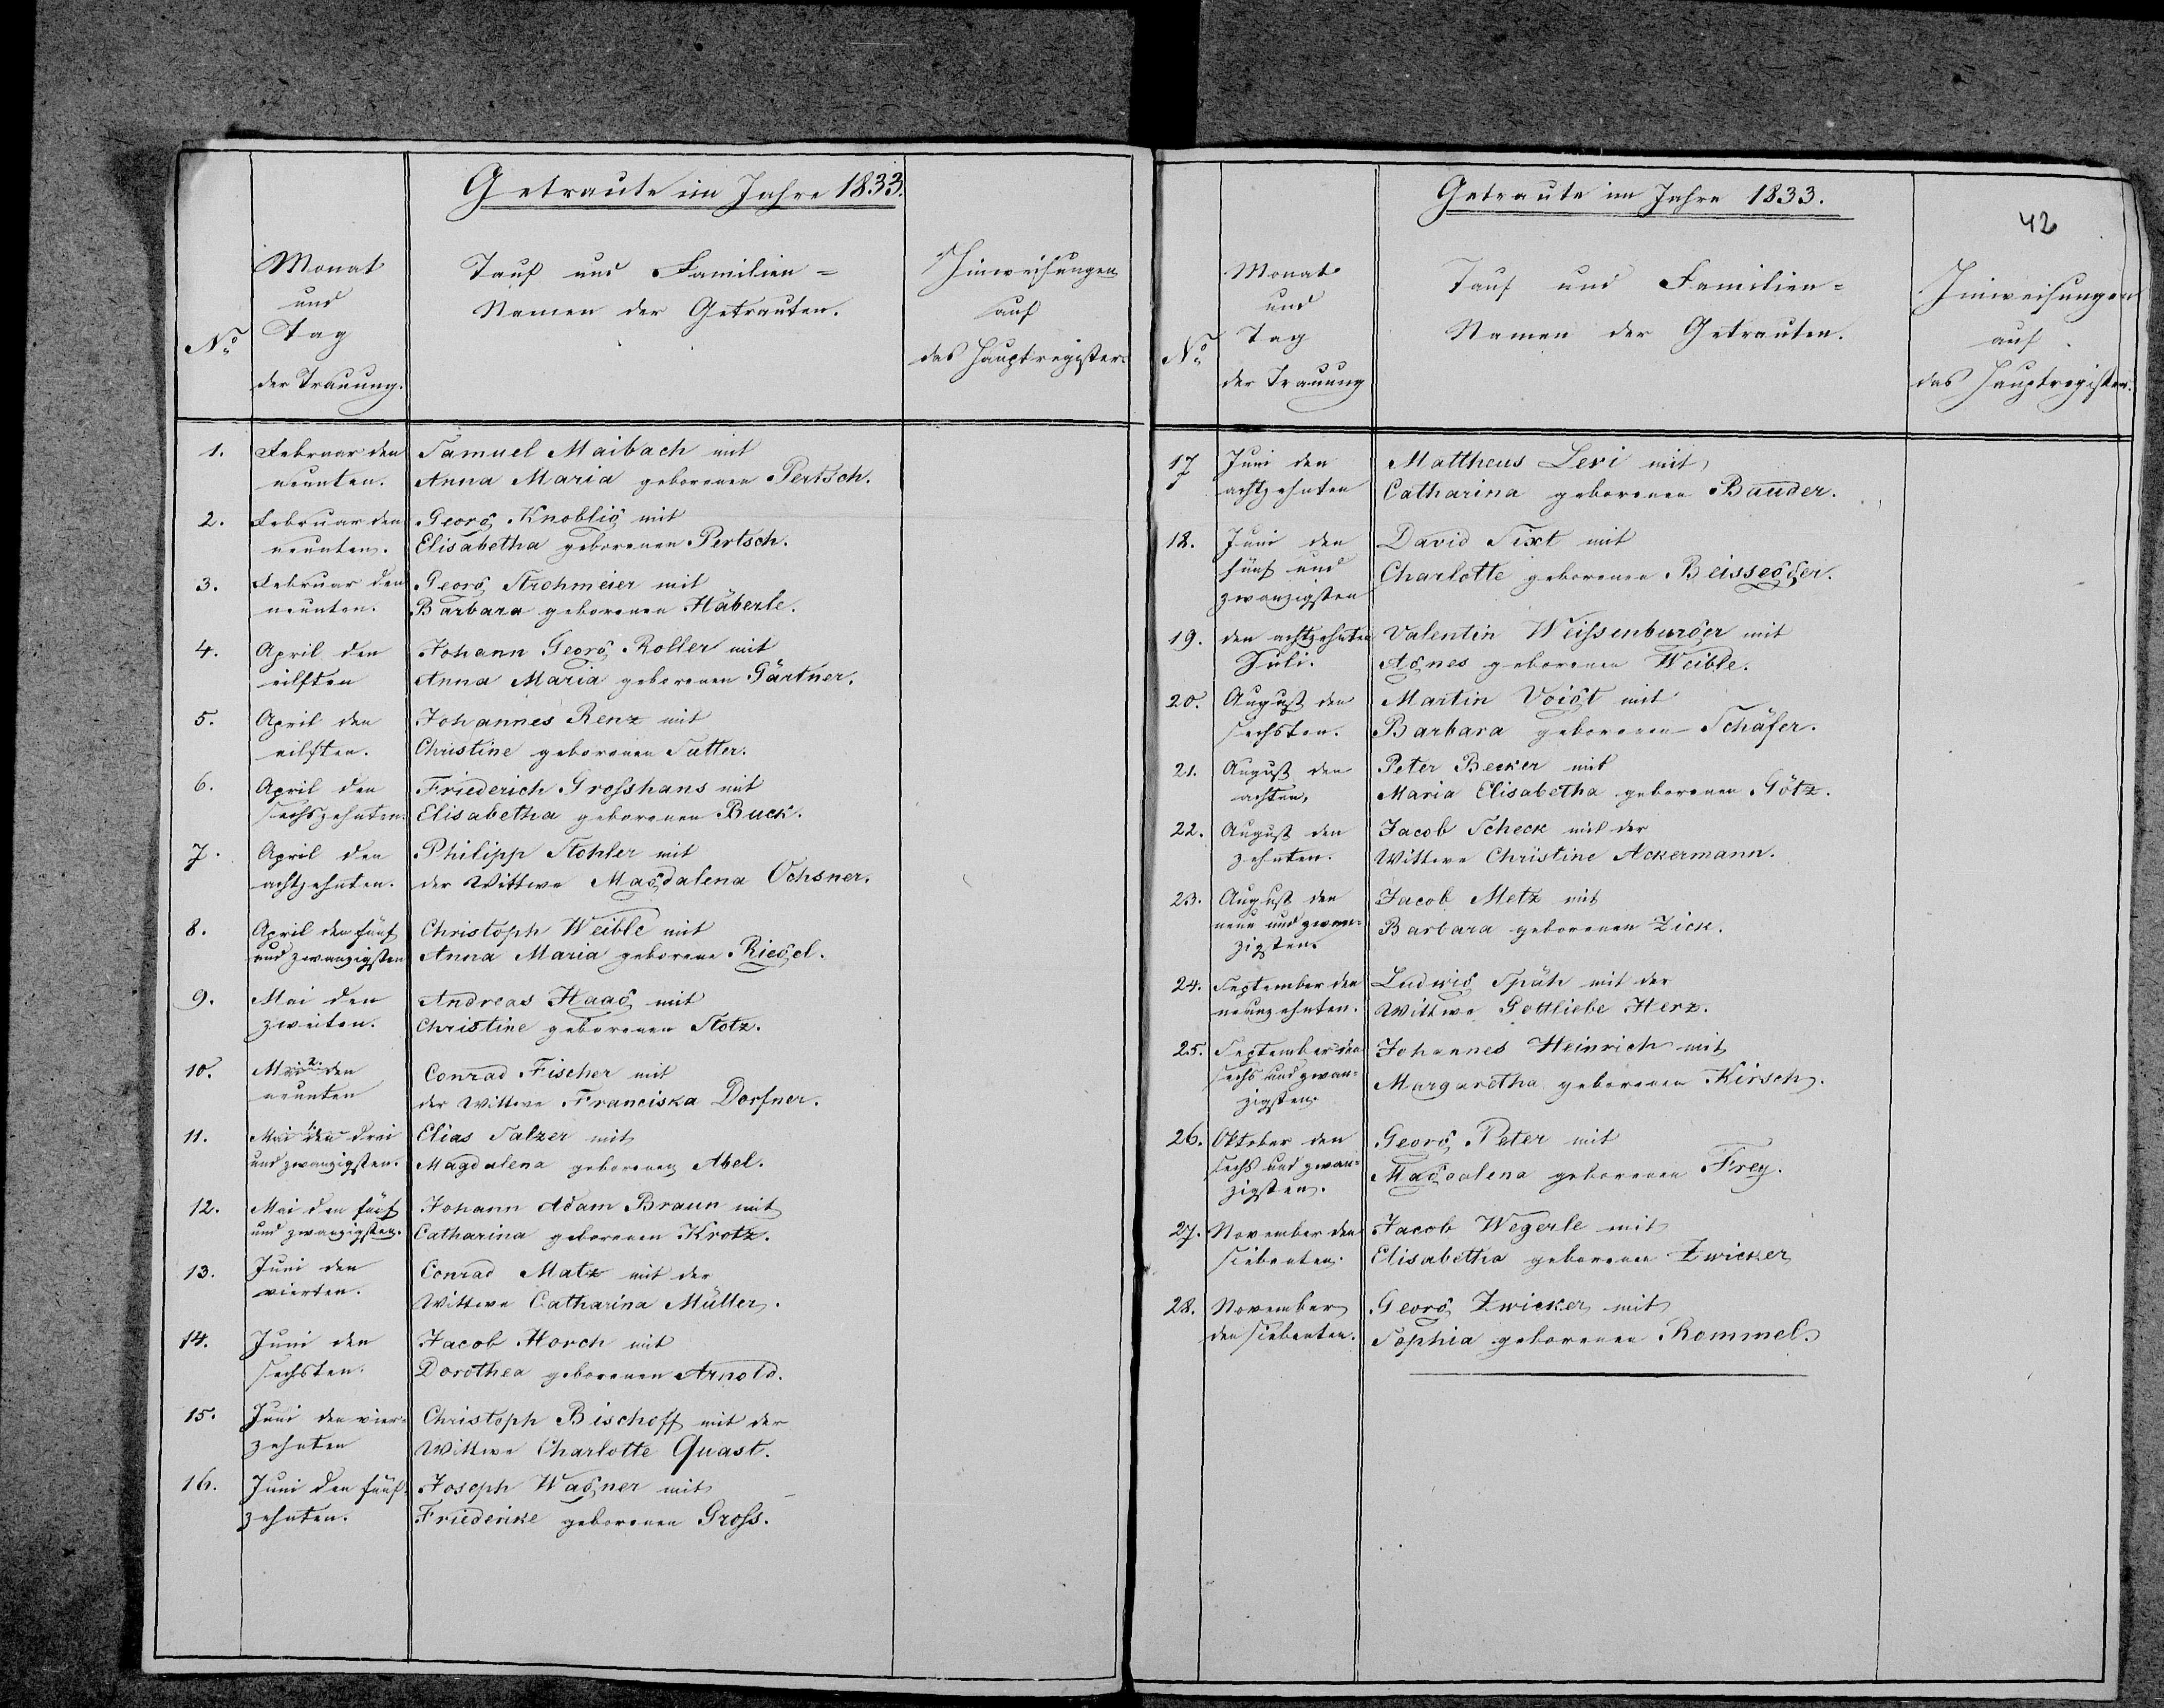 Getraute im Jahre 1833.
No
Monat
und
Tag
der Trauung.
Tauf und Familien=
Namen der Getrauten.
Hinweisungen
auf
das Hauptregister.
1. Februar den Samuel Maibach mit
neunten. Anna Maria geborenen Pertsch.
2. Februar den Georg Knoblig mit
neunten. Elisabetha geborenen Pertsch.
3. Februar den Georg Strohmeier mit
neunten. Barbara geborenen Häberle.
4. April den Johann Georg Roller mit
eilften Anna Maria geborenen Gärtner.
5. April den Johannes Renz mit
eilften. Christine geborenen Satter.
6. April den Friederich Grosshans mit
sechszehnten. Elisabetha geborenen Buck.
7. April den Philipp Stohler mit
achtzehnten. der Wittwe Magdalena Ochsner.
8. April den fünf Christoph Weible mit
und zwanzigsten Anna Maria geborene Riegel.
9. Mai den Andreas Haag mit
zweiten. Christine geborenen Stotz.
10. Mai 2. den Conrad Fischer mit
neunten der Wittwe Franciska Dorfner.
11. Mai 1. den drei Elias Salzer mit
und zwanzigsten. Magdalena geborenen Abel.
12. Mai den fünf Johann Adam Braun mit
und zwanzigsten. Catharina geborenen Krotz.
13. Juni den Conrad Matz mit der
vierten. Wittwe Catharina Müller.
14. Juni den Jacob Horch mit
sechsten. Dorothea geborenen Arnold.
15. Juni den vier= Christoph Bischoff mit der
zehnten Wittwe Charlotte Quast.
16. Juni den fünf= Joseph Wagner mit
zehnten. Friederike geborenen Gross.
Getraute im Jahre 1833.
42
No
Monat
und
Tag
der Trauung
Tauf und Familien=
Namen der Getrauten.
Hinweisungen
auf
das Hauptregister.
17 Juni den Mattheus Levi mit
achtzehnten Catharina geborenen Bauder.
18. Juni den David Sixt mit
fünf und Charlotte geborenen Beissegger.
zwanzigsten
19. den achtzehnten Valentin Weissenburger mit
Juli. Agnes geborenen Weible.
20. August den Martin Voigt mit
sechsten. Barbara geborenen Schäfer.
21. August den Peter Becker mit
achten, Maria Elisabetha geborenen Götz.
22. August den Jacob Scheck mit der
zehnten. Wittwe Christine Ackermann.
23. August den Jacob Metz mit
neun und zwan= Barbara geborenen Zick.
zigsten.
24. September den Ludwig Späth mit der
neunzehnten. Wittwe Gottliebe Herz.
25. September den Johannes Heinrich mit
sechs und zwan= Margaretha geborenen Kirsch.
zigsten.
26. Oktober den Georg Peter mit
sechs und zwan= Magdalena geborenen Frey.
zigsten.
27. November den Jacob Wegerle mit
siebenten. Elisabetha geborenen Zwicker
28. November Georg Zwicker mit
den siebenten. Sophia geborenen Rommel.